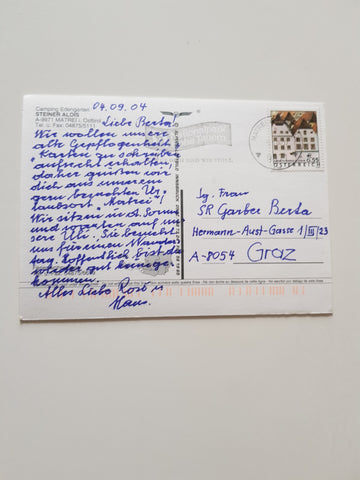 Camping Edengarten
STEINER ALOIS
A-9971 MATREI i. Osttirol
Tel. u. Fax: 04875/5111
04.09.04
Liebe Berta!
Wir wollen unsere
alte Gepflogenheit
"Karten zu schreiben"
aufrecht erhalten,
daher grüßen wir
dich aus unserem
gern besuchten Ur-
laubsort "Matrei"!
Wir sitzen in d. Sonne
und
sere Uli. Sie besucht
uns für einen Wander-
tag. Hoffentlich bist du
wieder gut heimge-
kommen.
Alles Liebe Rosi u
Hans.
ÖSTERREICH
0,55
Sg. Frau
SR Garber Berta
Hermann-Aust-Gasse 1/III/23
A-8054 Graz